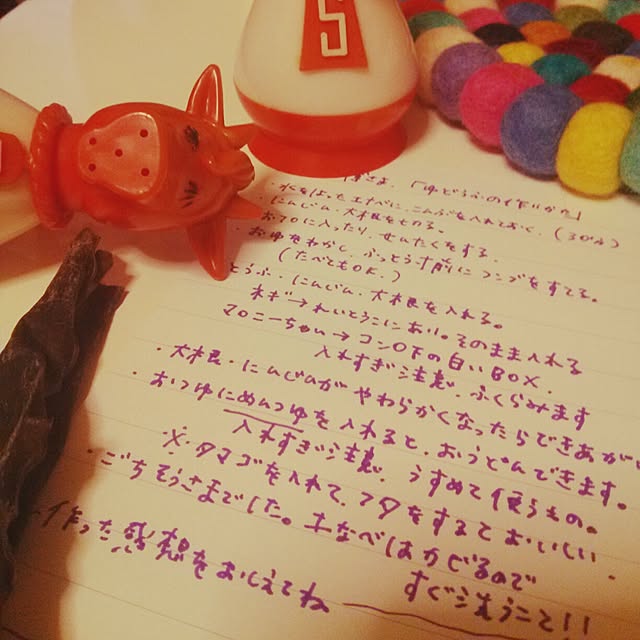 S
「ゆどうふの作りかた」
・水をはった土ナベに、こんぶを入れておく。(30分)
・にんじん・大根をきる。
・おフロに入ったり、せんたくをする。
・お湯をわかし、ふっとう寸前にコンブをすてる。
(たべてもOK.)
とうふ・にんじん・大根を入れる。
ネギ→れいとうこにあり。そのまま入れる
マロニーちゃん→コンロ下の白いBOX.
入れすぎ注意. ふくらみます
・大根・にんじんが やわらかくなったらできあが
・おつゆにめんつゆを入れると、おうどんできます。
入れすぎ注意. うすめて使うもの。
※・タマゴを入れて、フタをするとおいしい.
・ごちそうさまでした。土なべはカビるので
すぐ洗うこと!!
作った感想をおしえてね